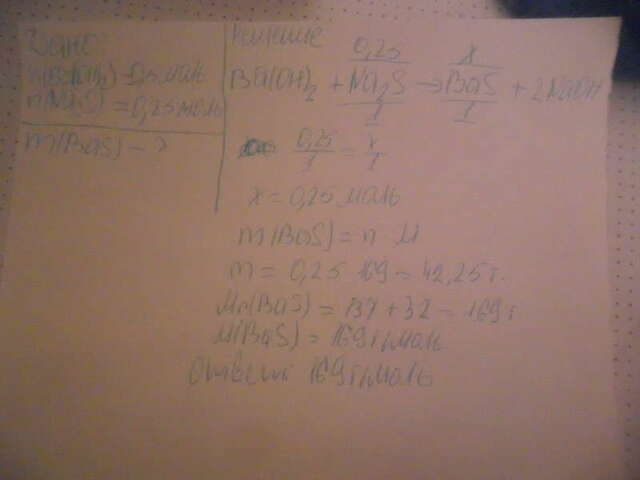 Дано:
n(Ba(OH)2) - 0,5 моль
n(Na2S) = 0,25 моль
m(BaS) - ?
Решение
0,25 x
Ba(OH)2 + Na2S → BaS + 2NaOH
1 1
0,25/1 = x/1
x = 0,25 моль
m(BaS) = n M
m = 0,25 169 = 42,25 г.
Mr(BaS) = 137 + 32 = 169 г
M(BaS) = 169 г/моль
Ответ: 169 г/моль